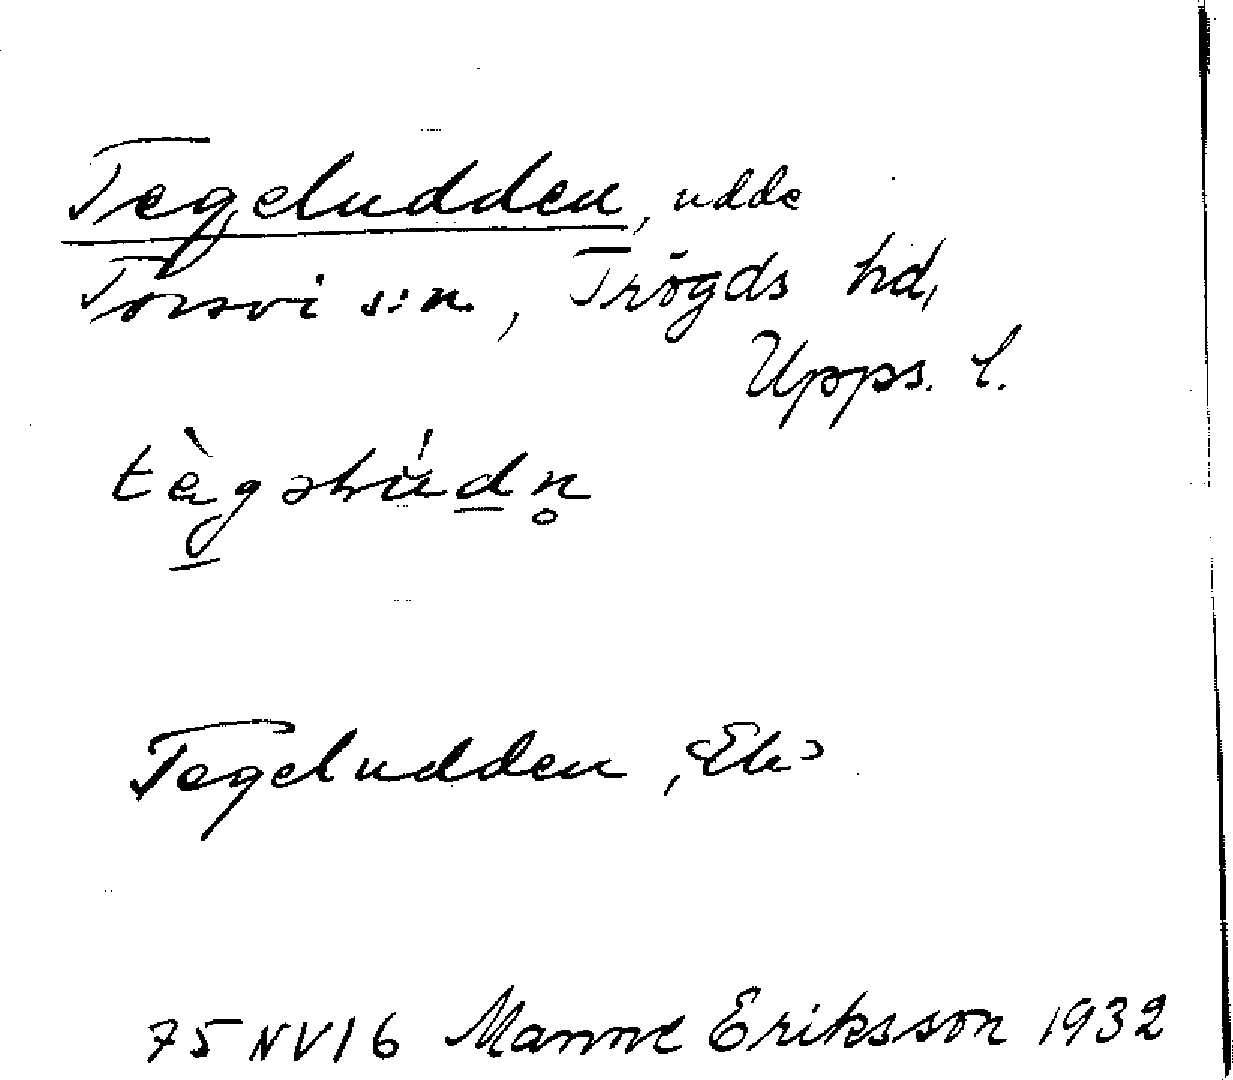 Tegeludden, udde
Torsvi s:n, Trögds hd,
Upps. l.
Tegeludden, Ek
75 NV 16 Manne Eriksson 1932